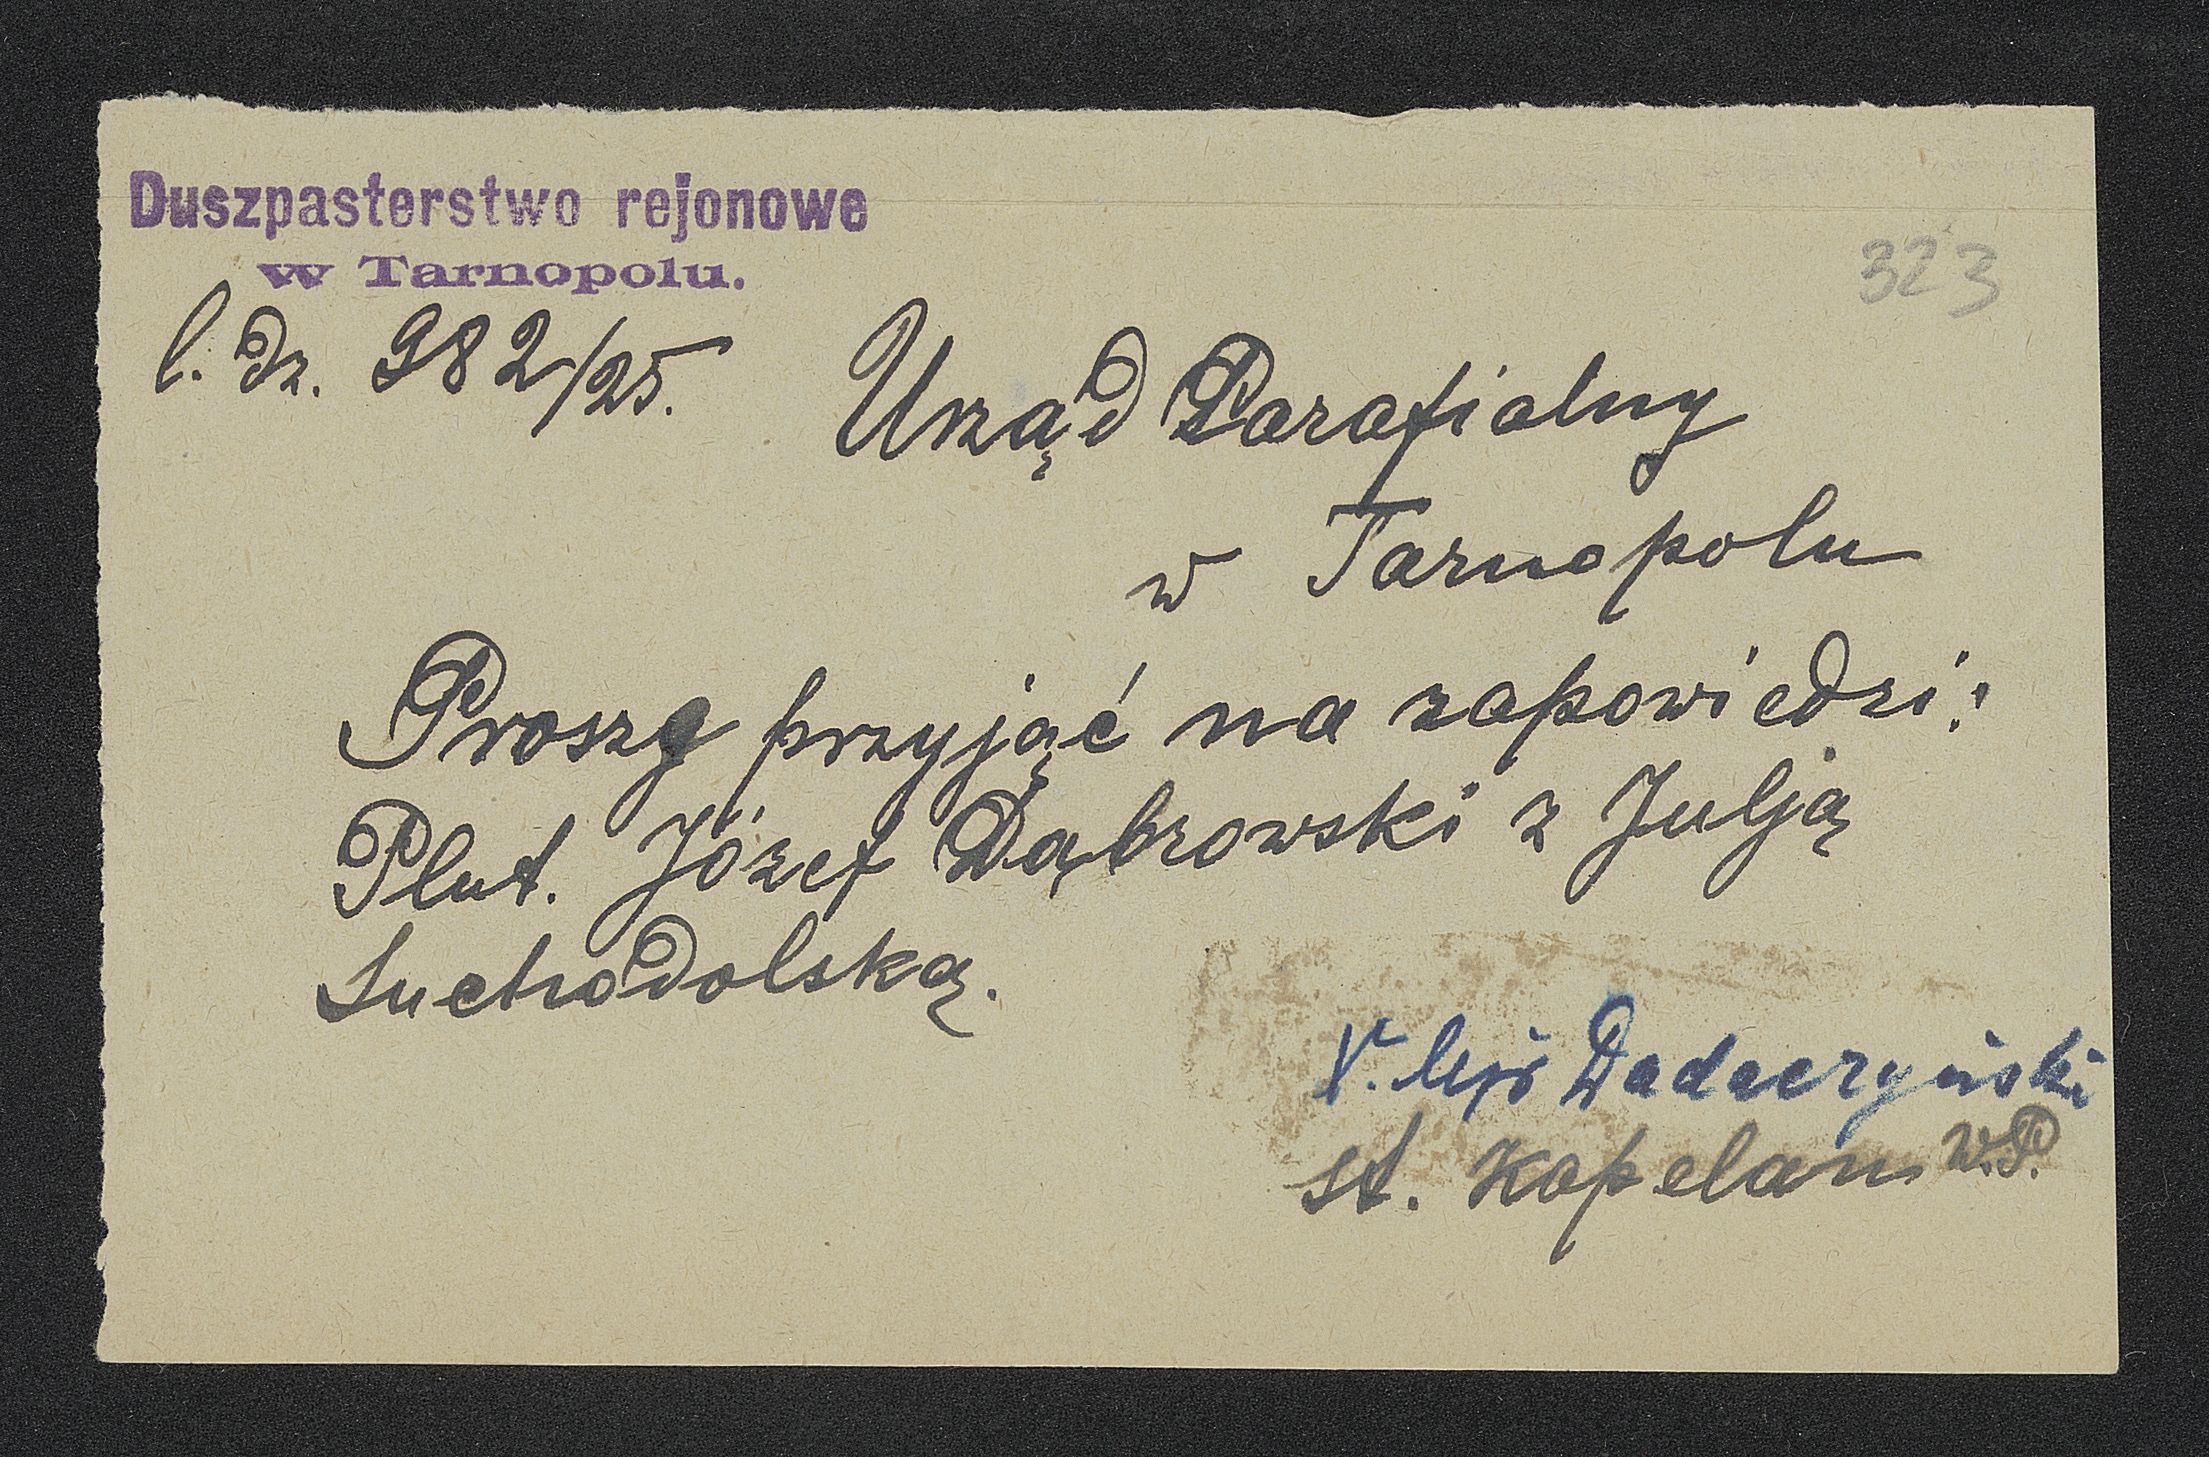 Duszpasterstwo rejonowe
w Tarnopolu.
323
l. dz. 982/25.
Urząd Parafialny
w Tarnopolu
Proszę przyjąć na zapowiedzi:
Plut. Józef Dąbrowski z Julją
Suchodolską.
X.
st. Kapelan W.P.